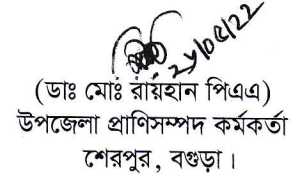 (ডাঃ মোঃ রায়হান পিএএ)
উপজেলা প্রাণিসম্পদ কর্মকর্তা
শেরপুর, বগুড়া।